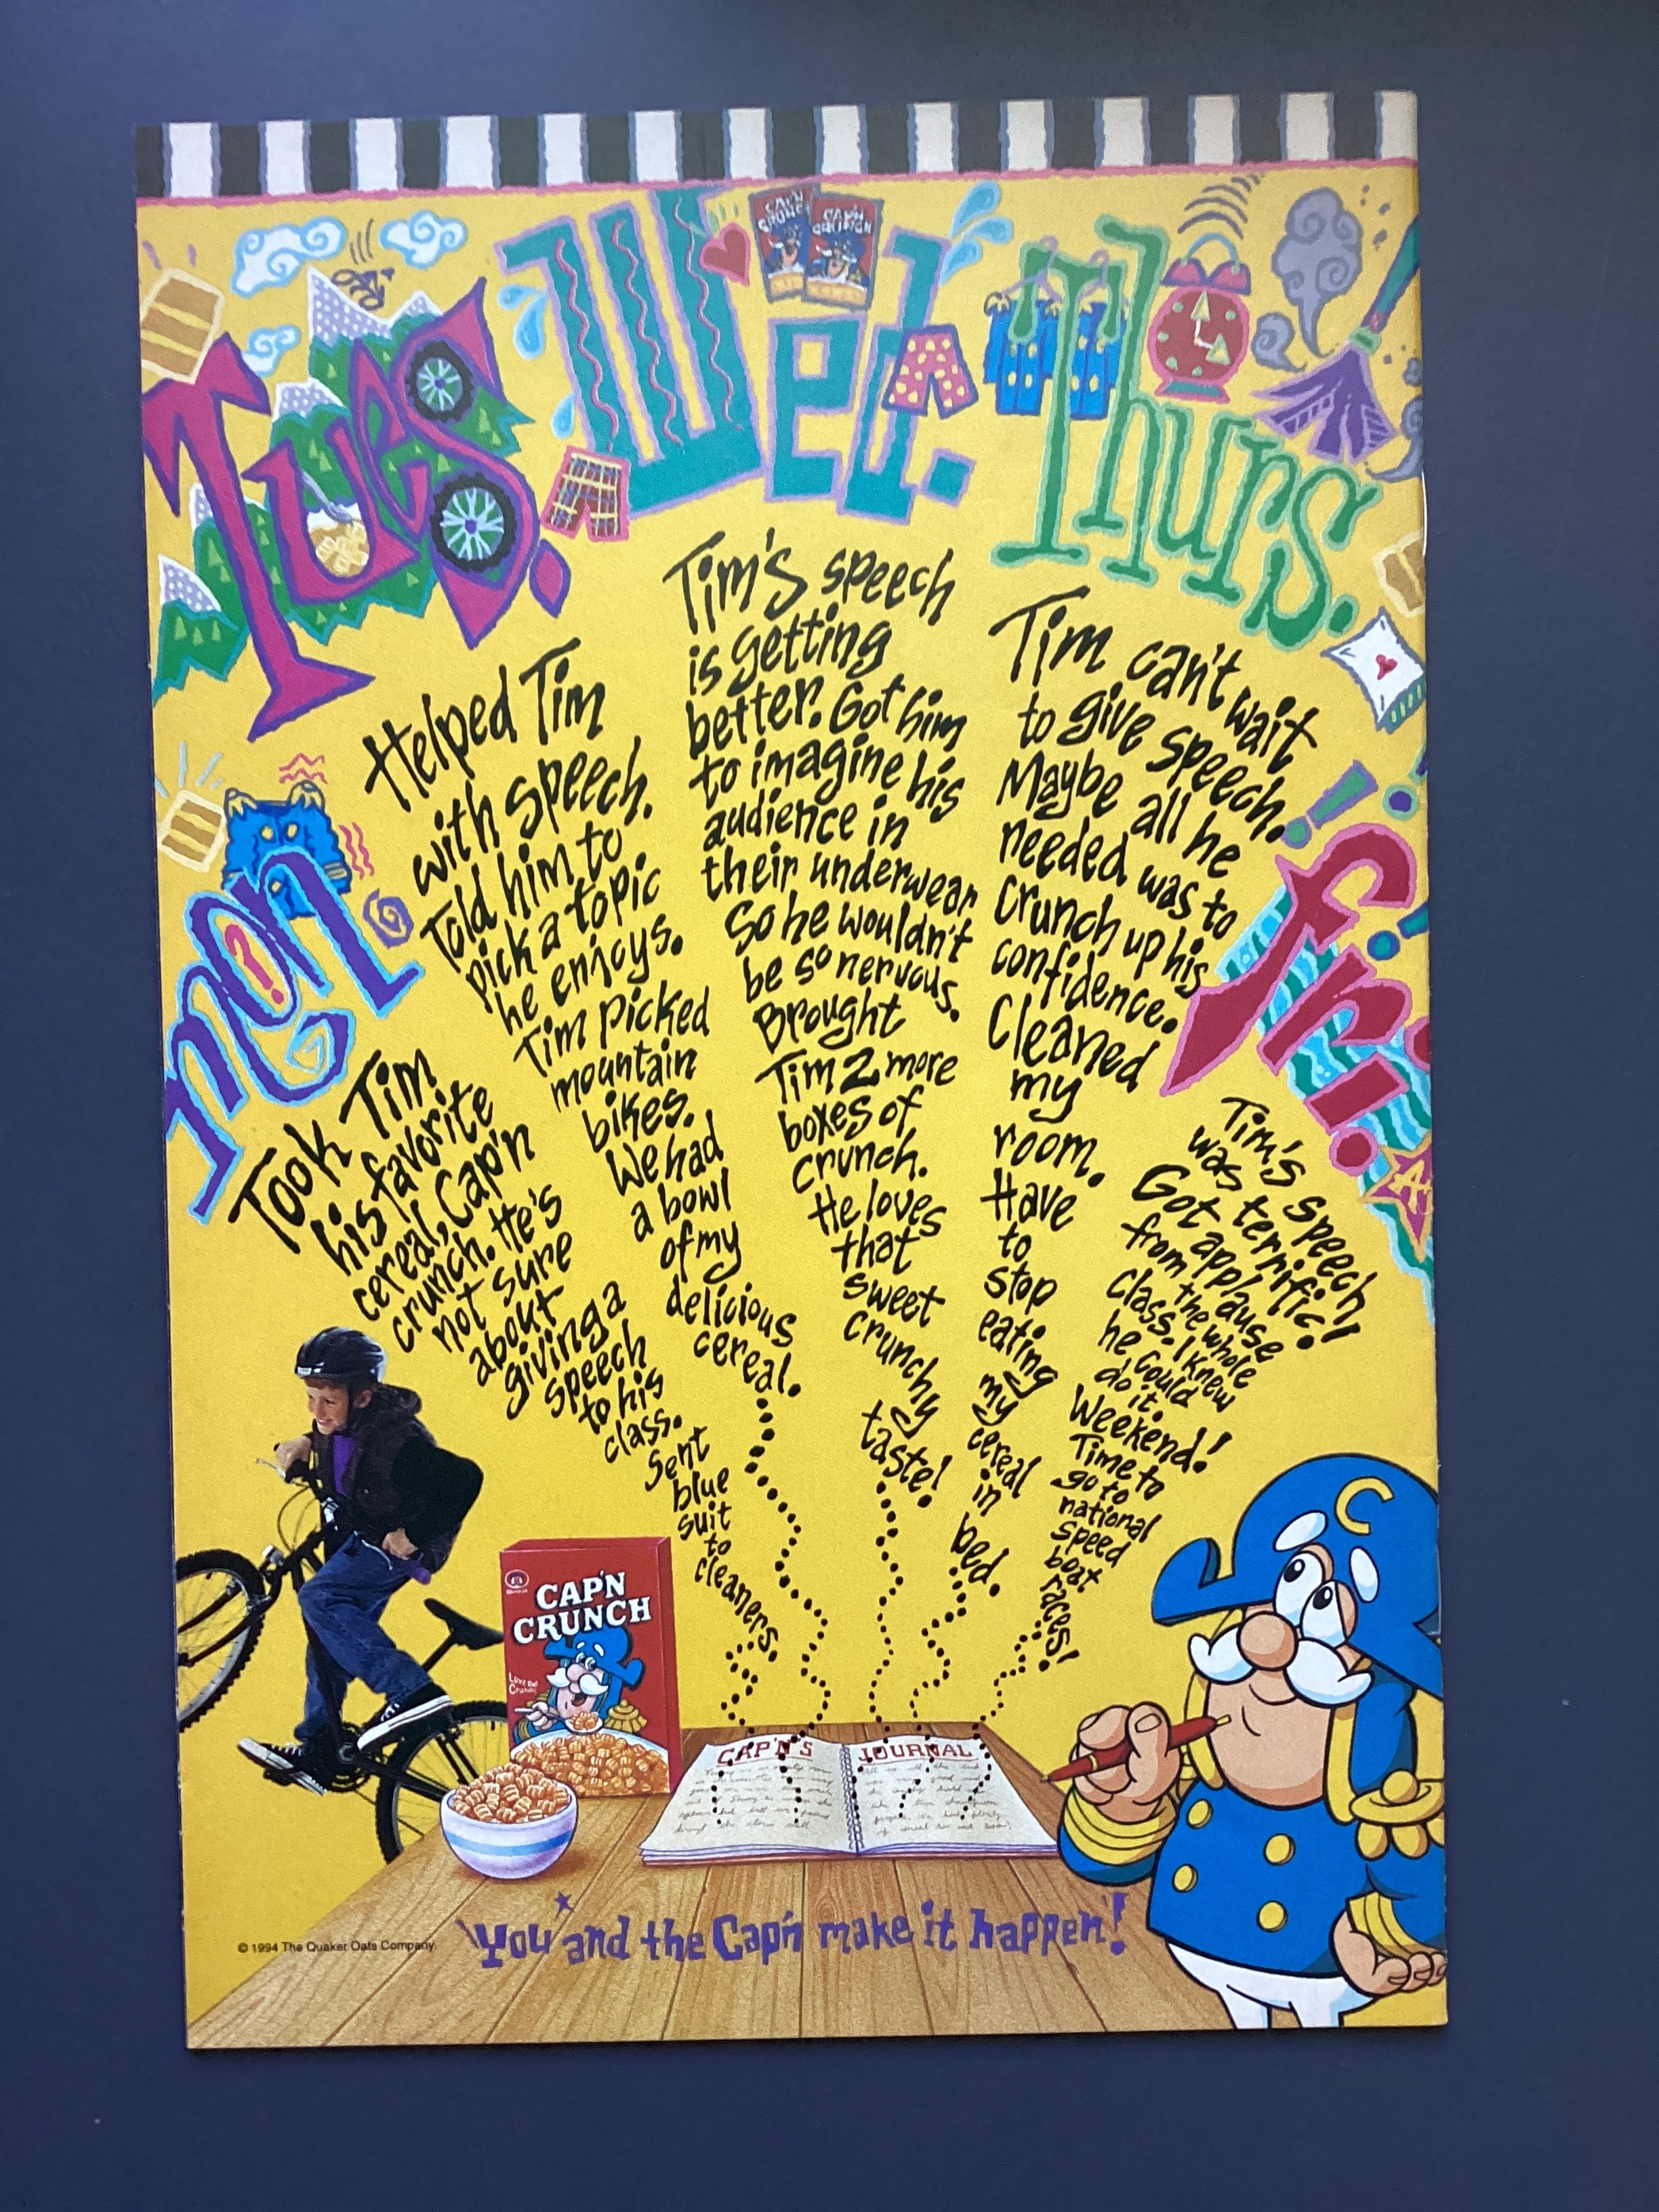 Mon
Took Tim
his favorite
cereal, Cap'n
crunch. He's
not sure
about
giving a
speech
to his
class.
Sent
blue
suit
to
cleaners.
Tues.
Helped Tim
with speech.
Told him to
pick a topic
he enjoys.
Tim picked
mountain
bikes.
We had
a bowl
of my
delicious
cereal.
Wed.
CAP'N
CRUNCH
CAP'N
CRUNCH
Tim's speech
is getting
better. Got him
to imagine his
audience in
their underwear
So he wouldn't
be so nervous.
Brought
Tim 2 more
boxes of
crunch.
He loves
that
sweet
crunchy
taste!
Thurs.
Tim can't wait
to give speech.
Maybe all he
needed was to
crunch up his
confidence.
Cleaned
my
room.
Have
to
stop
eating
my
cereal
in
bed.
Fri!
A+
Tim's speech
was terrific!
Got applause
from the whole
class. I knew
he could
do it.
Weekend!
Time to
go to
national
speed
boat
races!
C
CAP'N
CRUNCH
CAP'N'S JOURNAL
© 1994 The Quaker Oats Company.
You and the Cap'n make it happen!